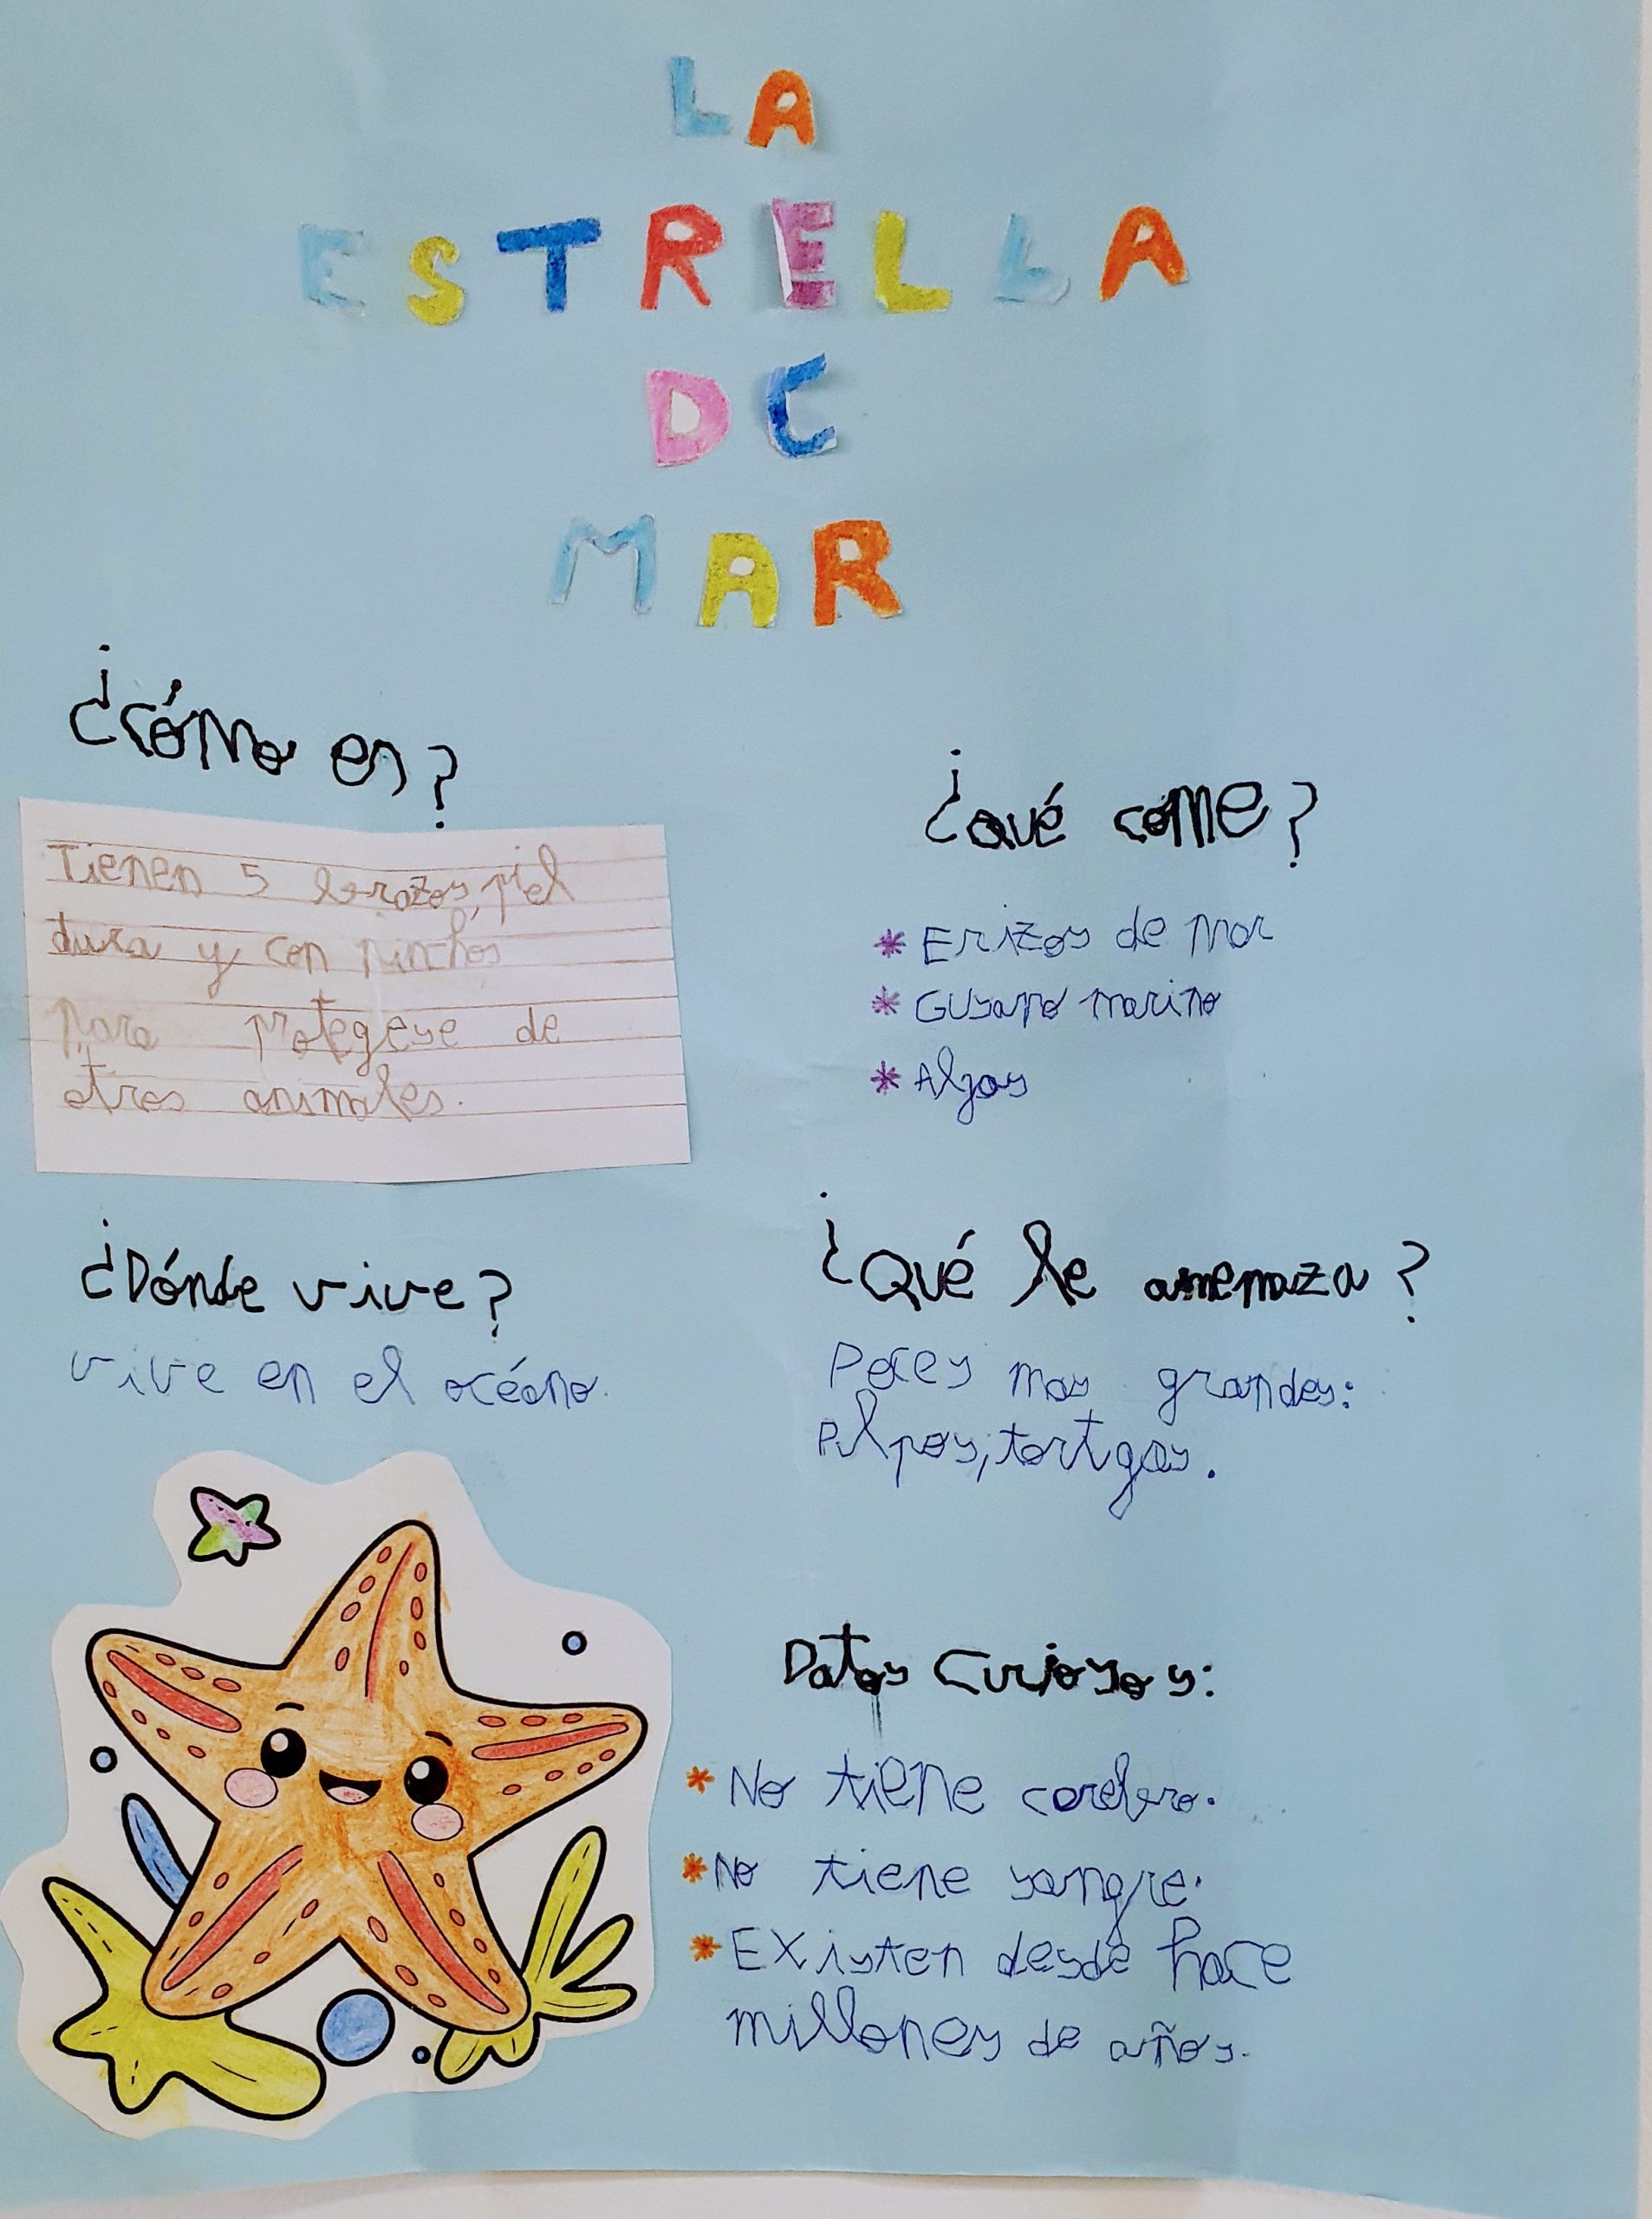 LA
ESTRELLA
DE
MAR
¿Cómo es?
Tienen 5 brazos, piel
dura y con pinchos
para protegese de
otros animales.
¿Dónde vive?
vive en el océano.
¿qué come?
* Erizos de mar
* Gusano marino
* Algas
¿Qué le amenaza?
Peces mas grandes:
Pulpos, tortugas.
Datos Curiosos:
* No tiene cerebro.
* No tiene sangre.
* Existen desde hace
millones de años.